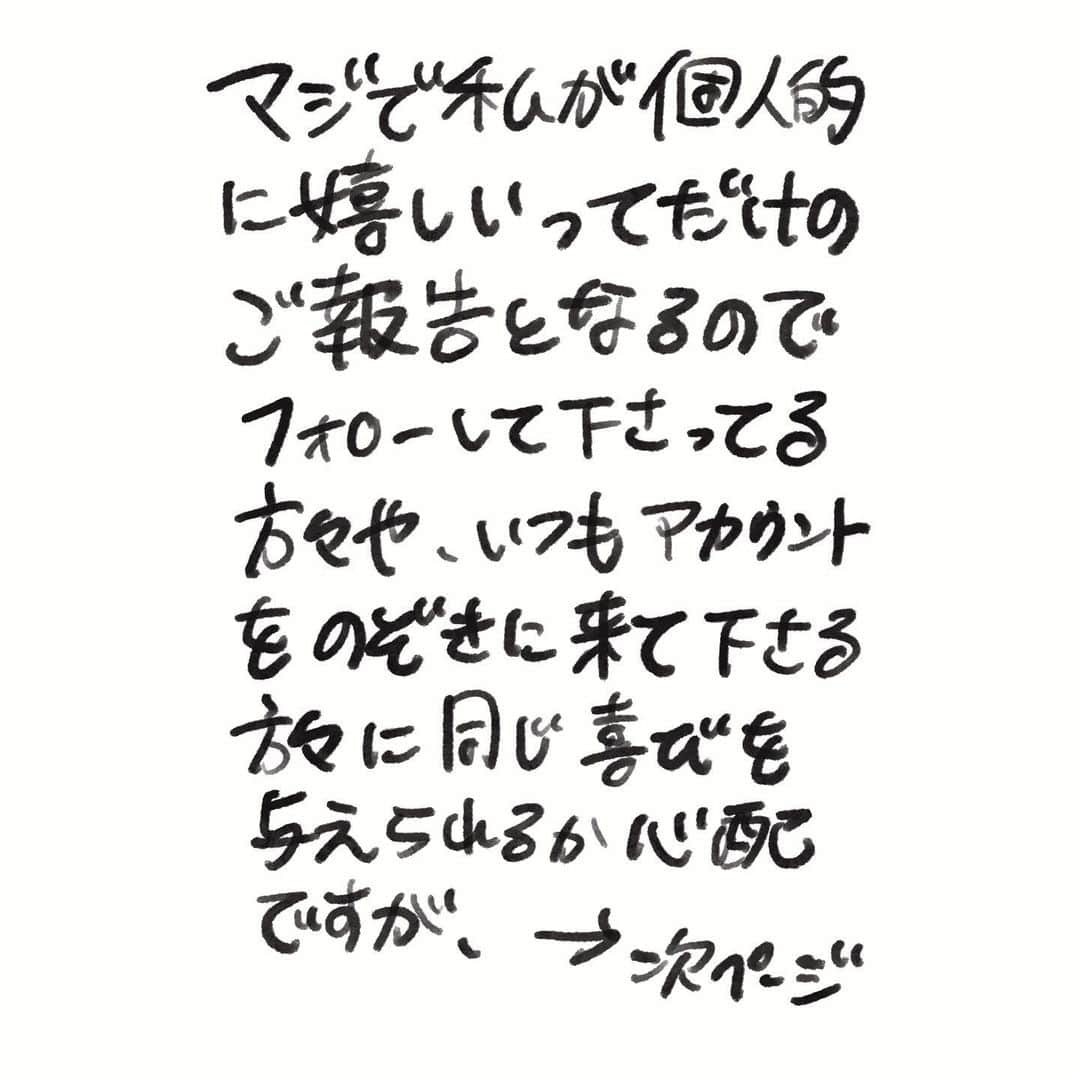 マジで私が個人的
に嬉しいってだけの
ご報告となるので
フォローして下さってる
方々や、いつもアカウント
をのぞきに来て下さる
方々に同じ喜びを
与えられるか心配
ですが、
→次ページ